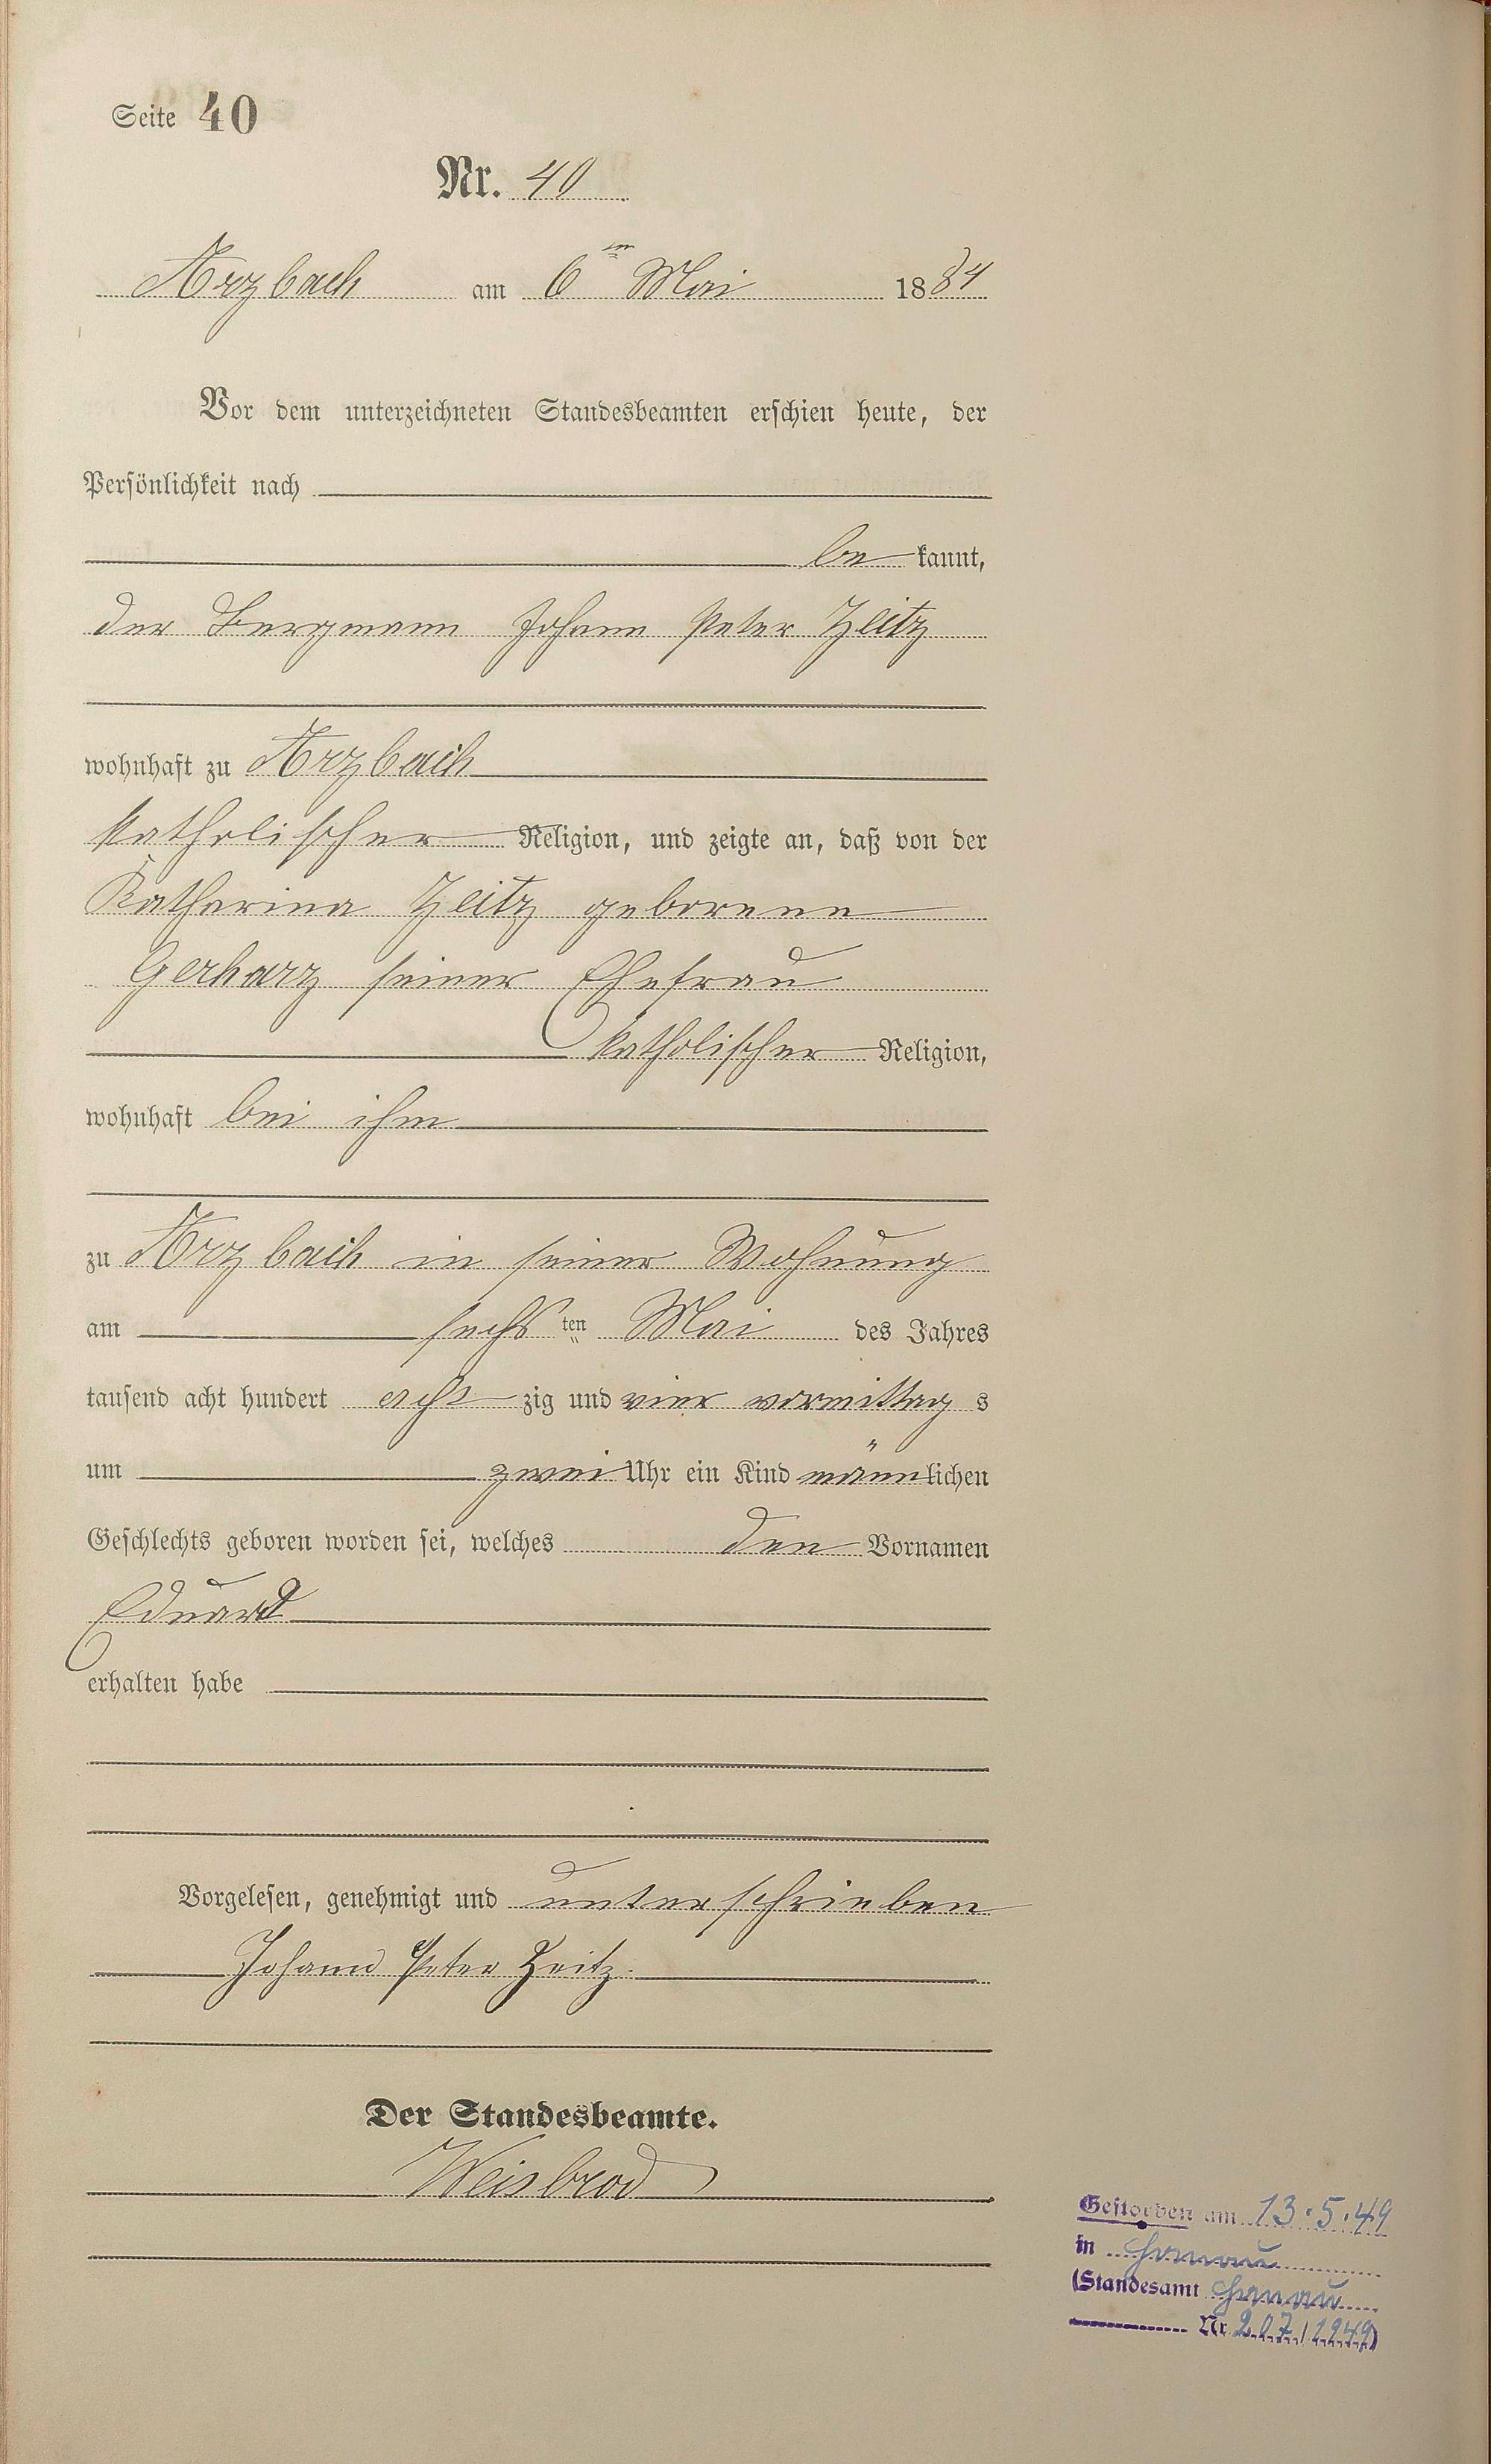 Seite 40
Nr. 40
Arzbach am 6ten Mai 1884
Vor dem unterzeichneten Standesbeamten erschien heute, der
Persönlichkeit nach
be kannt,
der Bergmann Johann Peter Zeitz
wohnhaft zu Arzbach
katholischer Religion, und zeigte an, daß von der
Katharina Zeitz geborene
Gerharz seiner Ehefrau
katholischer Religion,
wohnhaft bei ihm
zu Arzbach in seiner Wohnung
am sechs ten Mai des Jahres
tausend acht hundert acht zig und vier vormittag s
um zwei Uhr ein Kind männlichen
Geschlechts geboren worden sei, welches den Vornamen
Eduard
erhalten habe
Vorgelesen, genehmigt und unterschrieben
Johann Peter Zeitz.
Der Standesbeamte.
Weisbrod
Gestorben am 13.5.49
in Hanau
(Standesamt Hanau
Nr. 207/1949)